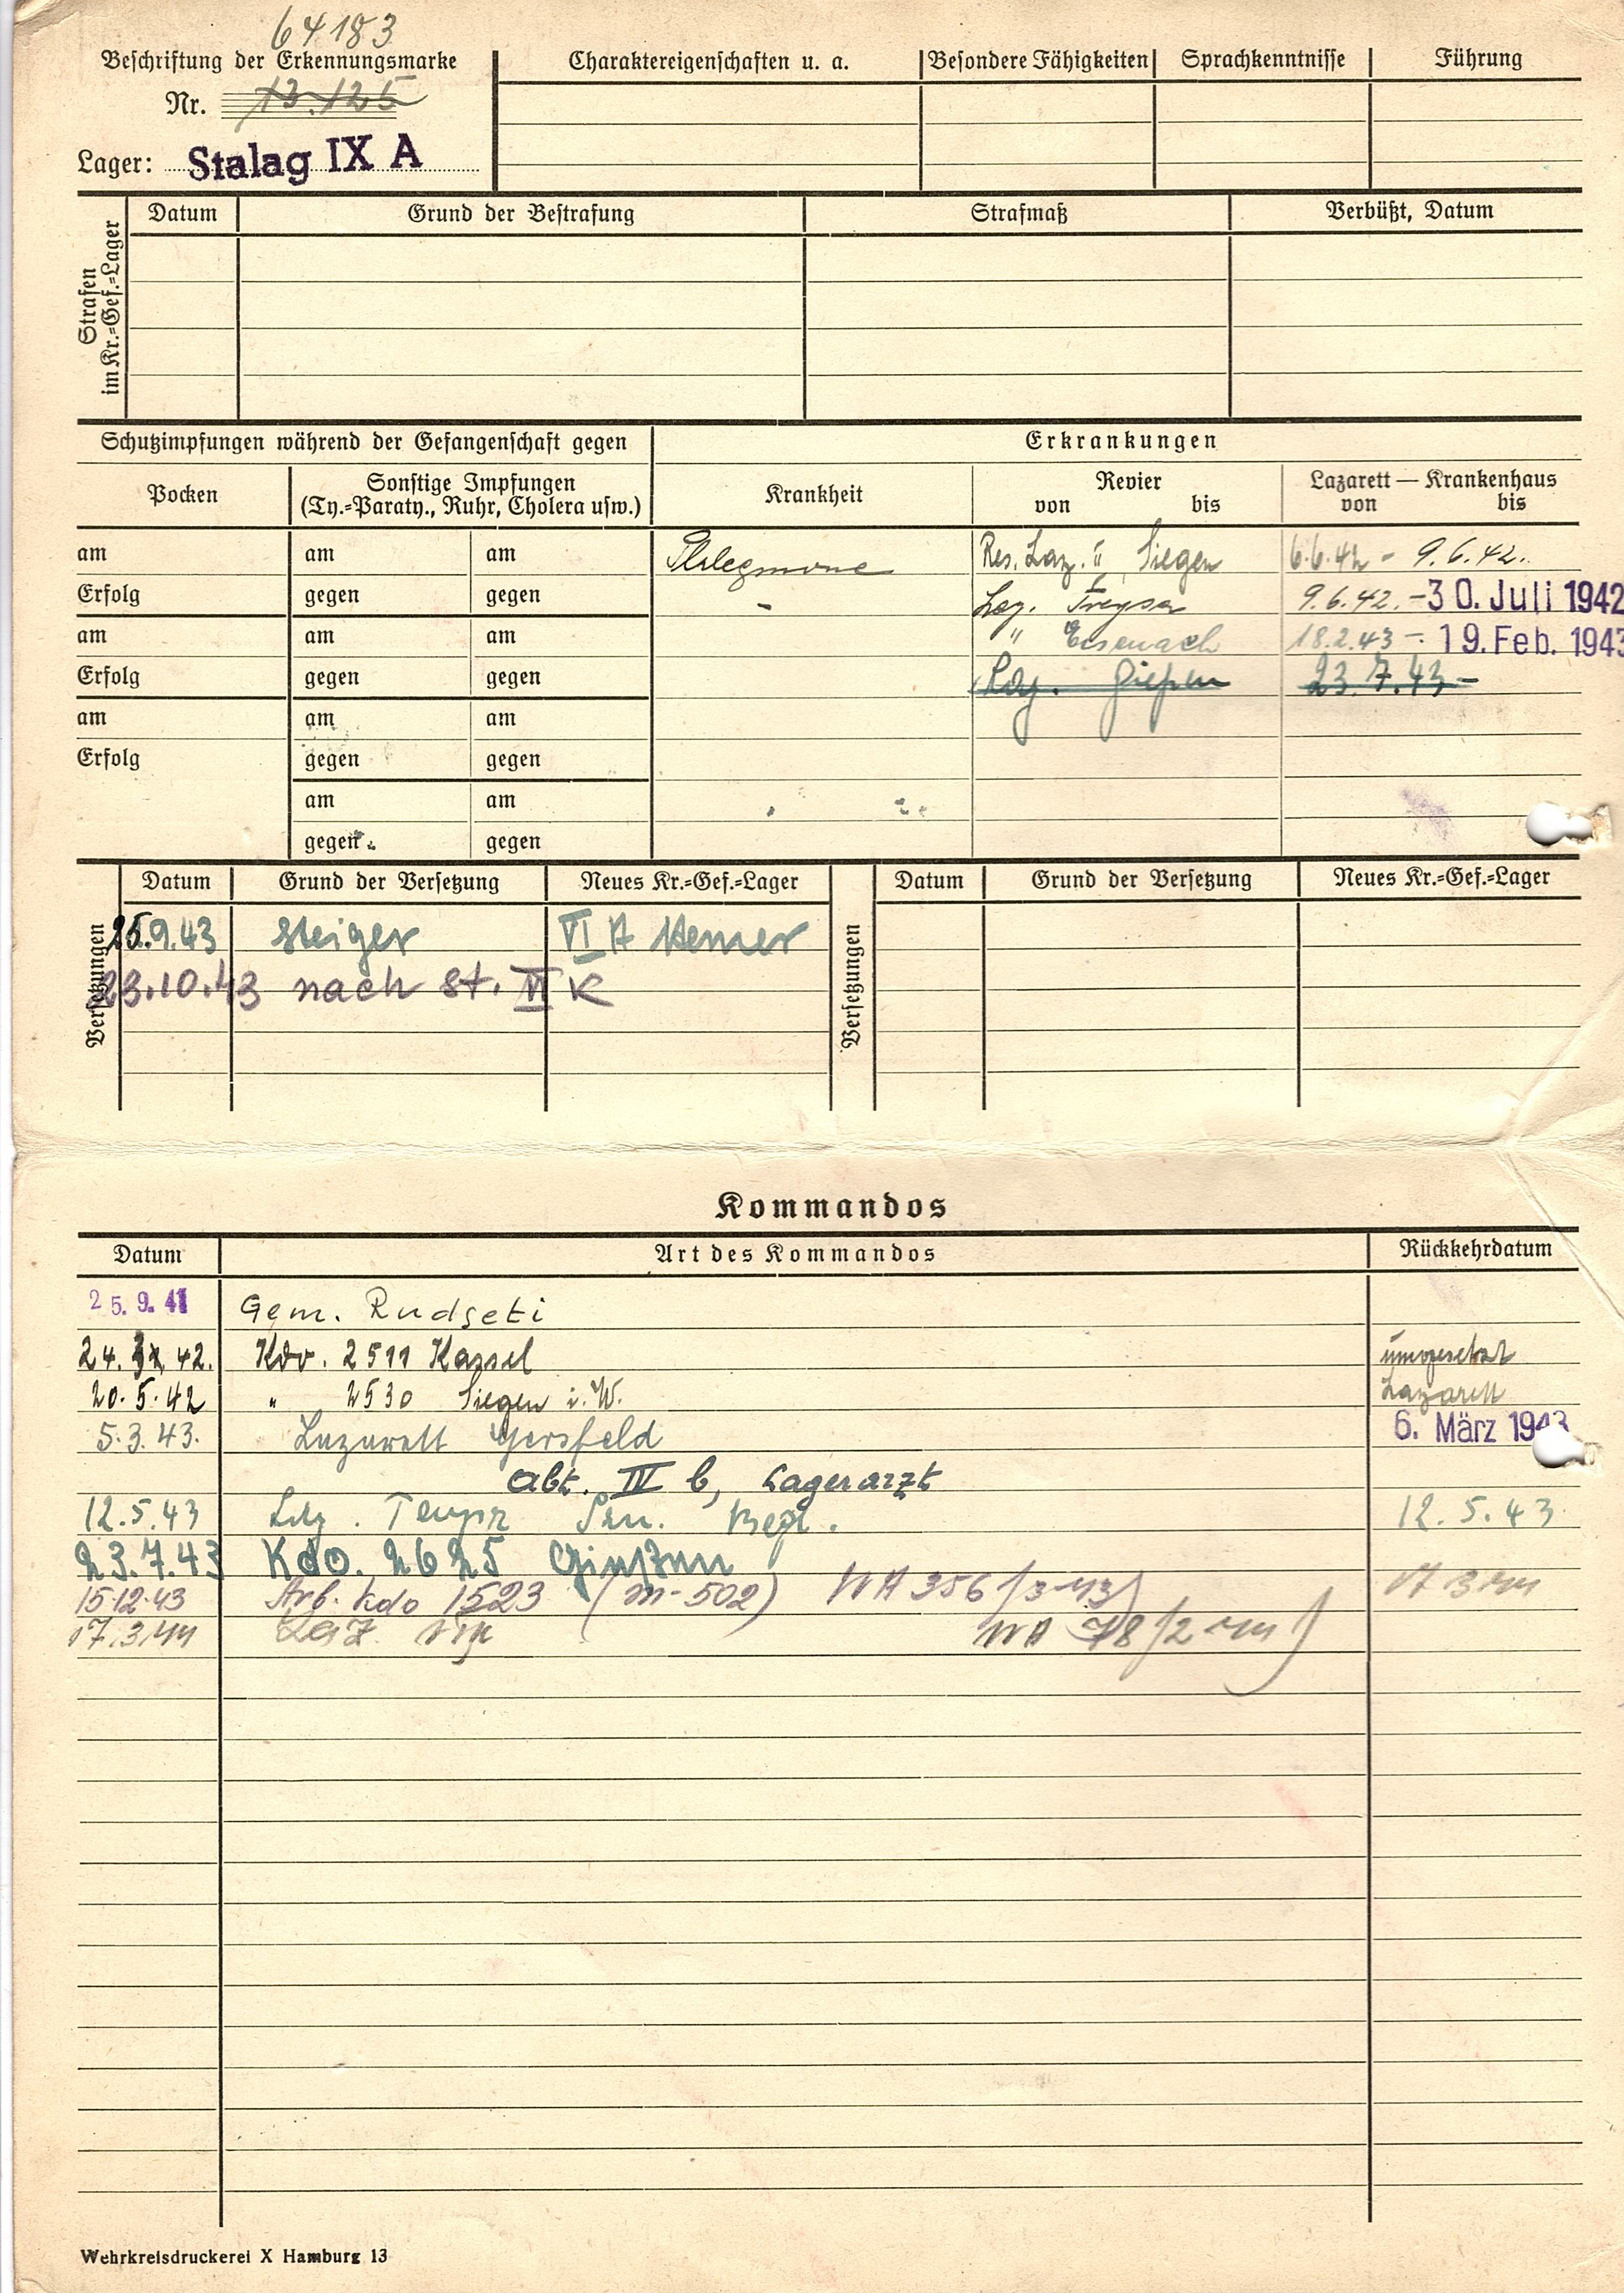 64183
Beschriftung der Erkennungsmarke
Nr. 13.125
Lager: Stalag IX A
Charaktereigenschaften u. a.
Besondere Fähigkeiten
Sprachkenntnisse
Führung
Strafen
im Kr.=Gef.=Lager
Datum
Grund der Bestrafung
Strafmaß
Verbüßt, Datum
Schutzimpfungen während der Gefangenschaft gegen
Erkrankungen
Pocken
Sonstige Impfungen
(Ty.=Paraty., Ruhr, Cholera usw.)
Krankheit
Revier
von bis
Lazarett — Krankenhaus
von bis
am am am Res. Laz. II, Siegen 6.6.42 - 9.6.42.
Erfolg gegen gegen - Laz. Treysa 9.6.42. - 30. Juli 1942
am am am " Eisenach 18.2.43 - 19. Feb. 1943
Erfolg gegen gegen Laz. Gießen 23.7.43 -
am am am
Erfolg gegen gegen
am am
gegen gegen
Versetzungen
Datum Grund der Versetzung Neues Kr.=Gef.=Lager
25.9.43 VI A Hemer
23.10.43 nach St. VI K
Versetzungen
Datum Grund der Versetzung Neues Kr.=Gef.=Lager
Kommandos
Datum Art des Kommandos Rückkehrdatum
25. 9. 41 Gem.
24. 42. Kdo. 2511 Kassel umgesetzt
20.5.42 " 2530 Siegen i. W. Lazarett
5.3.43. Lazarett Gersfeld 6. März 1943
Abt. IV b, Lagerarzt
12.5.43 Laz. 12.5.43
23.7.43 Kdo. 2625 Gießen
15.12.43 Arb. Kdo 1523 (M-502) WA 356/3-43) 17 3 44
17.3.44 Laz. WA 78/2-44)
Wehrkreisdruckerei X Hamburg 13